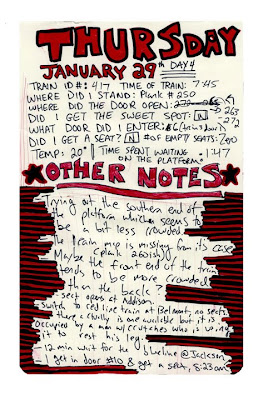 THURSDAY
JANUARY 29th DAY 4
TRAIN ID#: 417 TIME OF TRAIN: 7:45
WHERE DID I STAND: Plank #250
WHERE DID THE DOOR OPEN:
263
272
DID I GET THE SWEET SPOT: N
WHAT DOOR DID I ENTER: #6
DID I GET A SEAT? N # OF EMPTY SEATS: Zero
TEMP: 20° TIME SPENT WAITING 1:47
ON THE PLATFORM
OTHER NOTES
Trying out the southern end of
the platform which seems to
be a bit less crowded.
The train map is missing from its case
(plank 260ish)
Maybe the front end of the train
tends to be more crowded
than the back?
- seat opens at Addison.
- Switch to red line train at Belmont, no seats.
- there actually is one available but it is
occupied by a man w/crutches who is using
it to rest his leg.
- 12 min wait for blueline @ Jackson
- I get in door #10 & get a seat, 8:23am